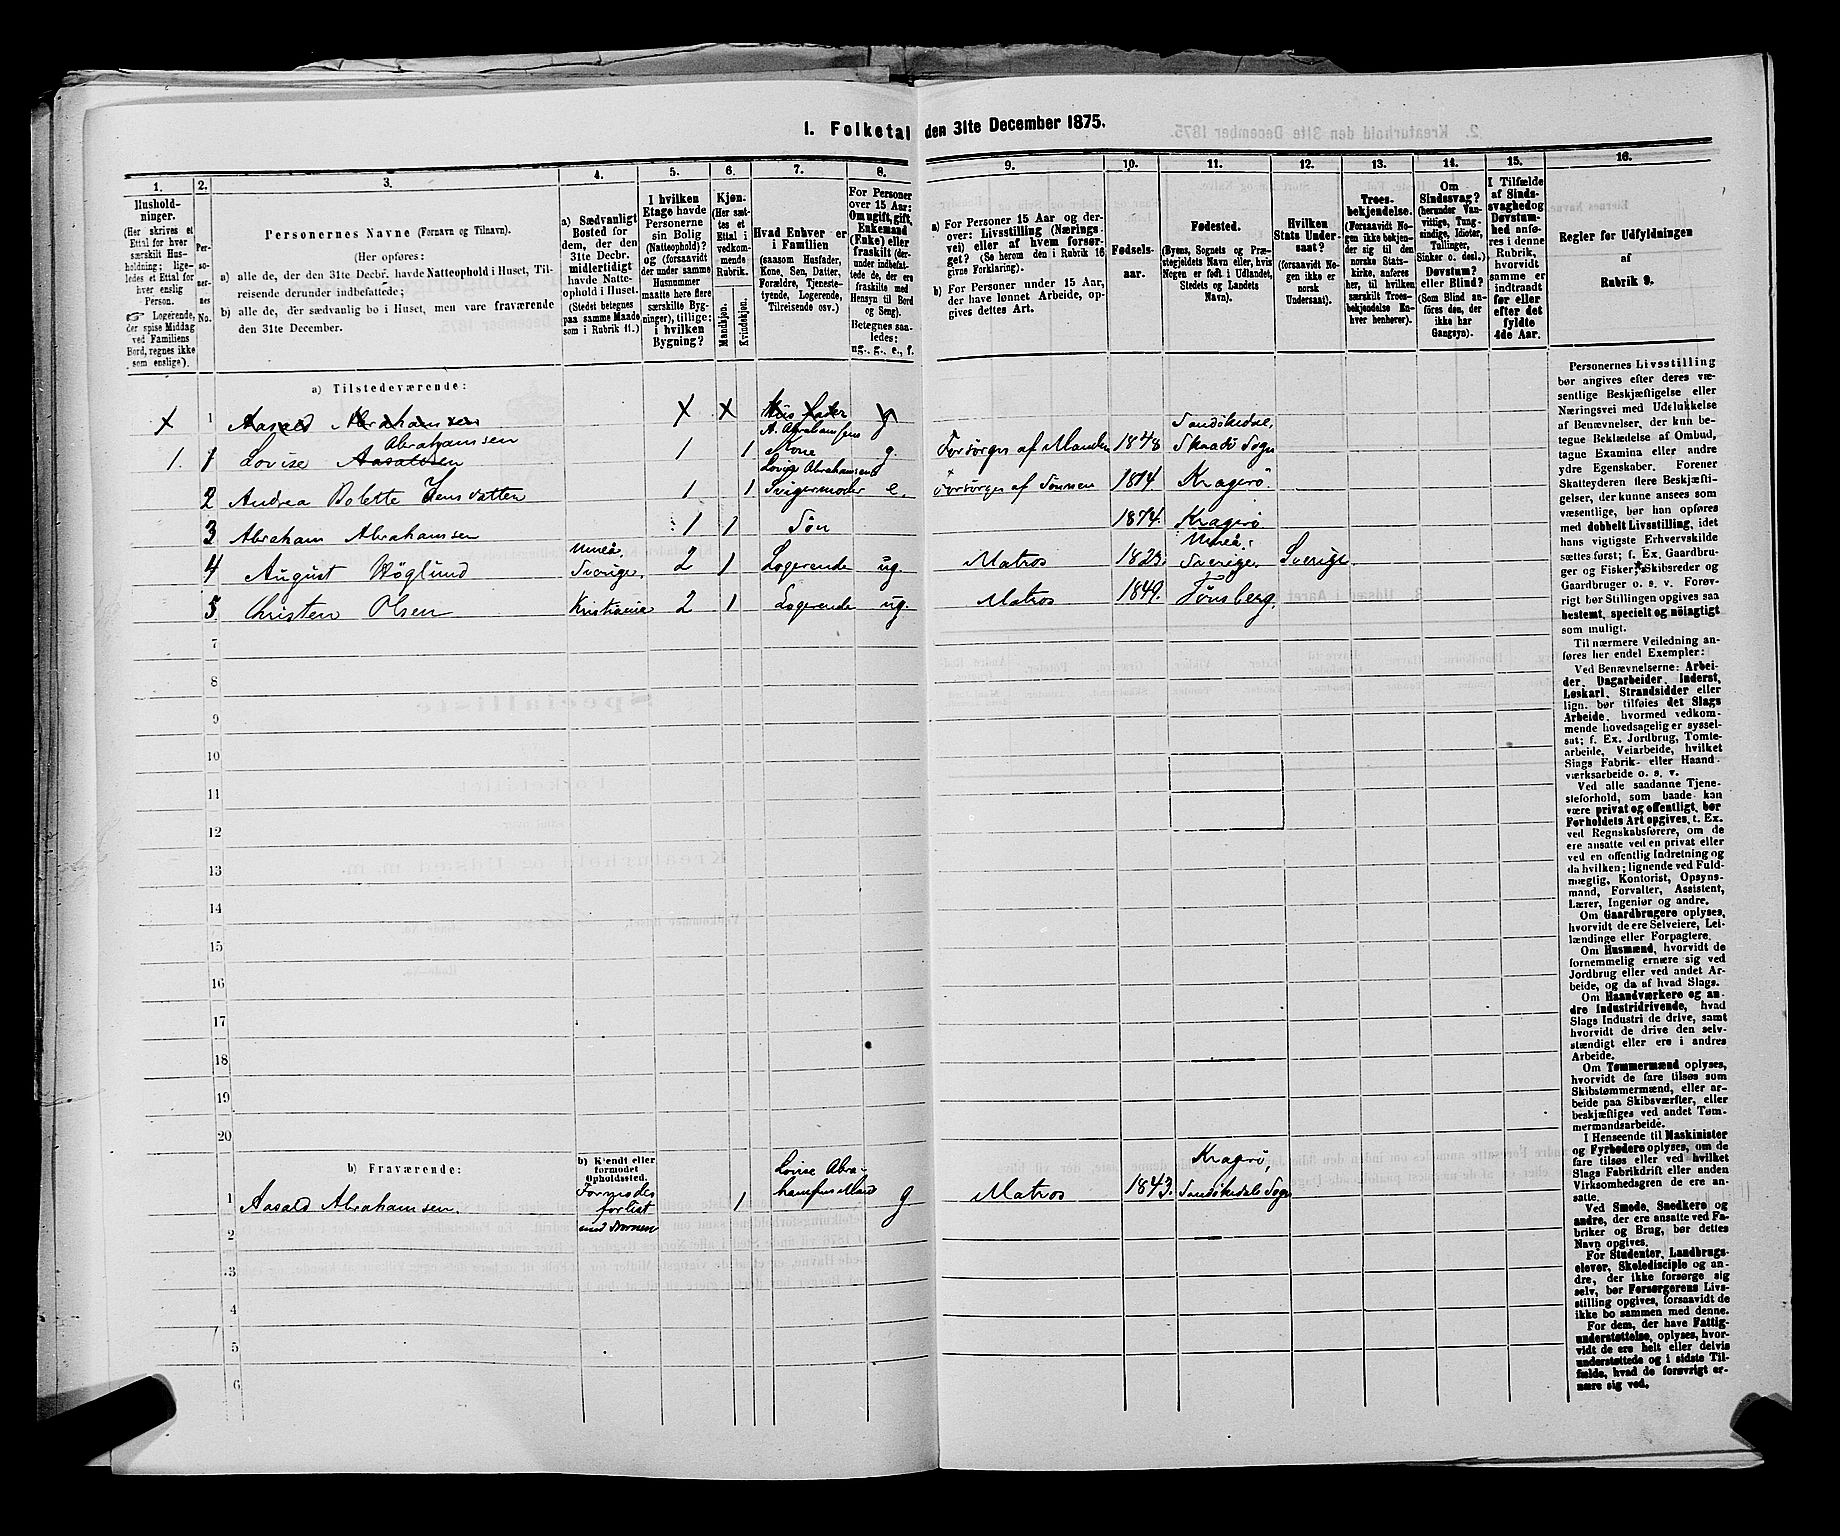 I. Folketal den 31te December 1875.
1. 2. 3. 4. 5. 6. 7. 8. 9. 10. 11. 12. 13. 14. 15. 16.
Hushold-
ninger.
(Her skrives et
Ettal for hver
særskilt Hus-
holdning; lige-
ledes et Ettal for
hver enslig
Person.
☞ Logerende,
der spise Middag
ved Familiens
Bord, regnes ikke
som enslige).
Per-
so-
ner-
nes
No.
Personernes Navne (Fornavn og Tilnavn).
(Her opføres:
a) alle de, der den 31te Decbr. havde Natteophold i Huset, Til-
reisende derunder indbefattede;
b) alle de, der sædvanlig bo i Huset, men vare fraværende
den 31te December.
a) Sædvanligt
Bosted for
dem, der den
31te Decbr.
midlertidigt
havde Natte-
ophold i Huset.
(Stedet betegnes
paa samme Maade
som i Rubrik 11.)
I hvilken
Etage havde
Personerne
sin Bolig
(Natteophold)?
og (forsaavidt
der under samme
Husnummer
maatte høre flere
særskilte Byg-
ninger), tillige:
i hvilken
Bygning?
Kjøn.
(Her sæt-
tes et
Ettal i
vedkom-
mende
Rubrik.
Mandkjøn.
Kvindekjøn.
Hvad Enhver er
i Familien
(saasom Husfader,
Kone, Søn, Datter,
Forældre, Tjeneste-
tyende, Logerende,
Tilreisende osv.)
For Personer
over 15 Aar:
Om ugift, gift,
Enkemand
(Enke) eller
fraskilt (der-
under indbefat-
tede de, der ere
fraskilte med
Hensyn til Bord
og Seng).
Betegnes saa-
ledes:
ug., g., e., f.
a) For Personer 15 Aar og der-
over: Livsstilling (Nærings-
vei) eller af hvem forsør-
get? (Se herom den i Rubrik 16
givne Forklaring).
b) For Personer under 15 Aar,
der have lønnet Arbeide, op-
gives dettes Art.
Fødsels-
aar.
Fødested.
(Byens, Sognets og Præ-
stegjeldets Navn eller, hvis
Nogen er født i Udlandet,
Stedets og Landets
Navn).
Hvilken
Stats Under-
saat?
(forsaavidt No-
gen ikke er
norsk
Undersaat).
Troes-
bekjendelse.
(Forsaavidt No-
gen ikke bekjen-
der sig til den
norske Stats-
kirke, anføres
her, til hvilken
særskilt Troes-
bekjendelse En-
hver henhører).
Om
Sindssvag?
(herunder Van-
vittige, Tung-
sindige, Idioter,
Tullinger,
Sinker o. desl.)
Døvstum?
eller Blind?
(Som Blind an-
føres den, der
ikke har
Gangsyn).
I Tilfælde
af Sinds-
svaghed og
Døvstum-
hed anfø-
res i denne
Rubrik,
hvorvidt
samme er
indtraadt
før eller
efter det
fyldte
4de Aar.
Regler for Udfyldningen
af
Rubrik 9.
a) Tilstedeværende:
x 1 Aasald Abrahamsen x x Husfader g
1. 1 Lovise Aasaldsen Abrahamsen 1 1 A. Abrahamsens Kone g. Forsørges af Manden 1848 Sandøkedal, Skaadø Sogn
2 Andrea Bolette Jensdatten 1 1 Lovise Abrahamsens Svigermoder e. Forsørges af Sønnen 1814. Kragerø.
3 Abraham Abrahamsen 1 1 Søn 1874. Kragerø
4 August Høglund Umeå, Sverige. 2 1 Logerende ug. Matros 1823. Umeå, Sverige. Sverige.
5. Christen Olsen Kristiania 2 1 Logerende ug. Matros 1849. Tønsberg.
7
8
9
10
11
12
13
14
15
16
17
18
19
20
b) Fraværende:
b) Kjendt eller
formodet
Opholdssted.
1 Aasald Abrahamsen. Formodes forlist med 1 Lovise Abrahamsens Mand g Matros 1843. Kragerø, Sandøkedals Sogn
2
3
4
5
6
Personernes Livsstilling
bør angives efter deres væ-
sentlige Beskjæftigelse eller
Næringsvei med Udelukkelse
af Benævnelser, der kun be-
tegne Beklædelse af Ombud,
tagne Examina eller andre
ydre Egenskaber. Forener
Skatteyderen flere Beskjæfti-
gelser, der kunne ansees som
væsentlige, bør han opføres
med dobbelt Livsstilling, idet
hans vigtigste Erhvervskilde
sættes først; f. Ex. Gaardbru-
ger og Fisker; Skibsreder og
Gaardbruger o. s. v. Forøv-
rigt bør Stillingen opgives saa
bestemt, specielt og nøiagtigt
som muligt.
Til nærmere Veiledning an-
føres her endel Exempler:
Ved Benævnelserne: Arbei-
der, Dagarbeider, Inderst,
Løskarl, Strandsidder eller
lign. bør tilføies det Slags
Arbeide, hvormed vedkom-
mende hovedsagelig er syssel-
sat; f. Ex. Jordbrug, Tomte-
arbeide, Veiarbeide, hvilket
Slags Fabrik- eller Haand-
værksarbeide o. s. v.
Ved alle saadanne Tjene-
steforhold, som baade kan
være privat og offentligt, bør
Forholdets Art opgives, t. Ex.
ved Regnskabsførere, om de
ere ansatte ved en privat eller
ved en offentlig Indretning og
da hvilken; lignende ved Fuld-
mægtig, Kontorist, Opsyns-
mand, Forvalter, Assistent,
Lærer, Ingeniør og andre.
Om Gaardbrugere oplyses,
hvorvidt de ere Selveiere, Lei-
lændinge eller Forpagtere.
Om Husmænd, hvorvidt de
fornemmelig ernære sig ved
Jordbrug eller ved andet Ar-
beide, og da af hvad Slags.
Om Haandværkere og an-
dre Industridrivende, hvad
Slags Industri de drive, samt
hvorvidt de drive den selv-
stændigt eller ere i andres
Arbeide.
Om Tømmermænd oplyses,
hvorvidt de fare tilsøs som
Skibstømmermænd, eller ar-
beide paa Skibsværfter, eller
beskjæftiges ved andet Tøm-
mermandsarbeide.
I Henseende til Maskinister
og Fyrbødere oplyses, om de
fare tilsøs eller ved hvilket
Slags Fabrikdrift eller anden
Virksomhedsgren de ere an-
satte.
Ved Smede, Snedkere og
andre, der ere ansatte ved Fa-
briker og Brug, bør dettes
Navn opgives.
For Studenter, Landbrugs-
elever, Skoledisciple og an-
dre, der ikke forsørge sig
selv, bør Forsørgerens Livs-
stilling opgives, forsaavidt de
ikke bo sammen med denne.
For dem, der have Fattig-
understøttelse, oplyses, hvor-
vidt de ere helt eller delvis
understøttede og i sidste Til-
fælde, hvad de forøvrigt er-
nære sig ved.